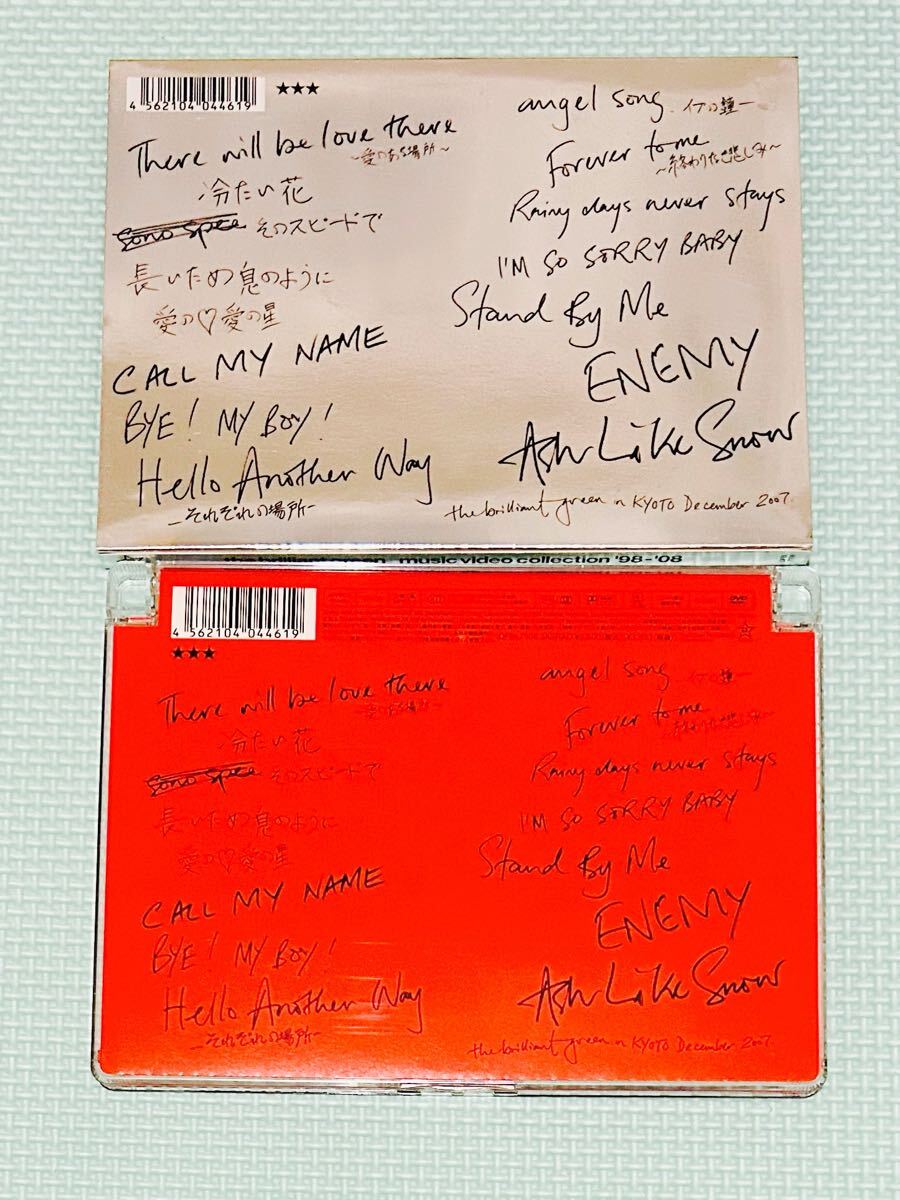 4 562104 044619
★★★
There will be love there
～愛のある場所～
冷たい花
そのスピードで
長いため息のように
愛の♡愛の星
CALL MY NAME
BYE! MY BOY!
Hello Another Way
–それぞれの場所–
angel song –イヴの鐘–
Forever to me
～終わりなき悲しみ～
Rainy days never stays
I'M SO SORRY BABY
Stand By Me
ENEMY
Ash Like Snow
the brilliant green in KYOTO December 2007.
the brilliant green music video collection '98-'08
4 562104 044619
★★★
There will be love there
～愛のある場所～
冷たい花
そのスピードで
長いため息のように
愛の♡愛の星
CALL MY NAME
BYE! MY BOY!
Hello Another Way
–それぞれの場所–
angel song –イヴの鐘–
Forever to me
～終わりなき悲しみ～
Rainy days never stays
I'M SO SORRY BABY
Stand By Me
ENEMY
Ash Like Snow
the brilliant green in KYOTO December 2007.